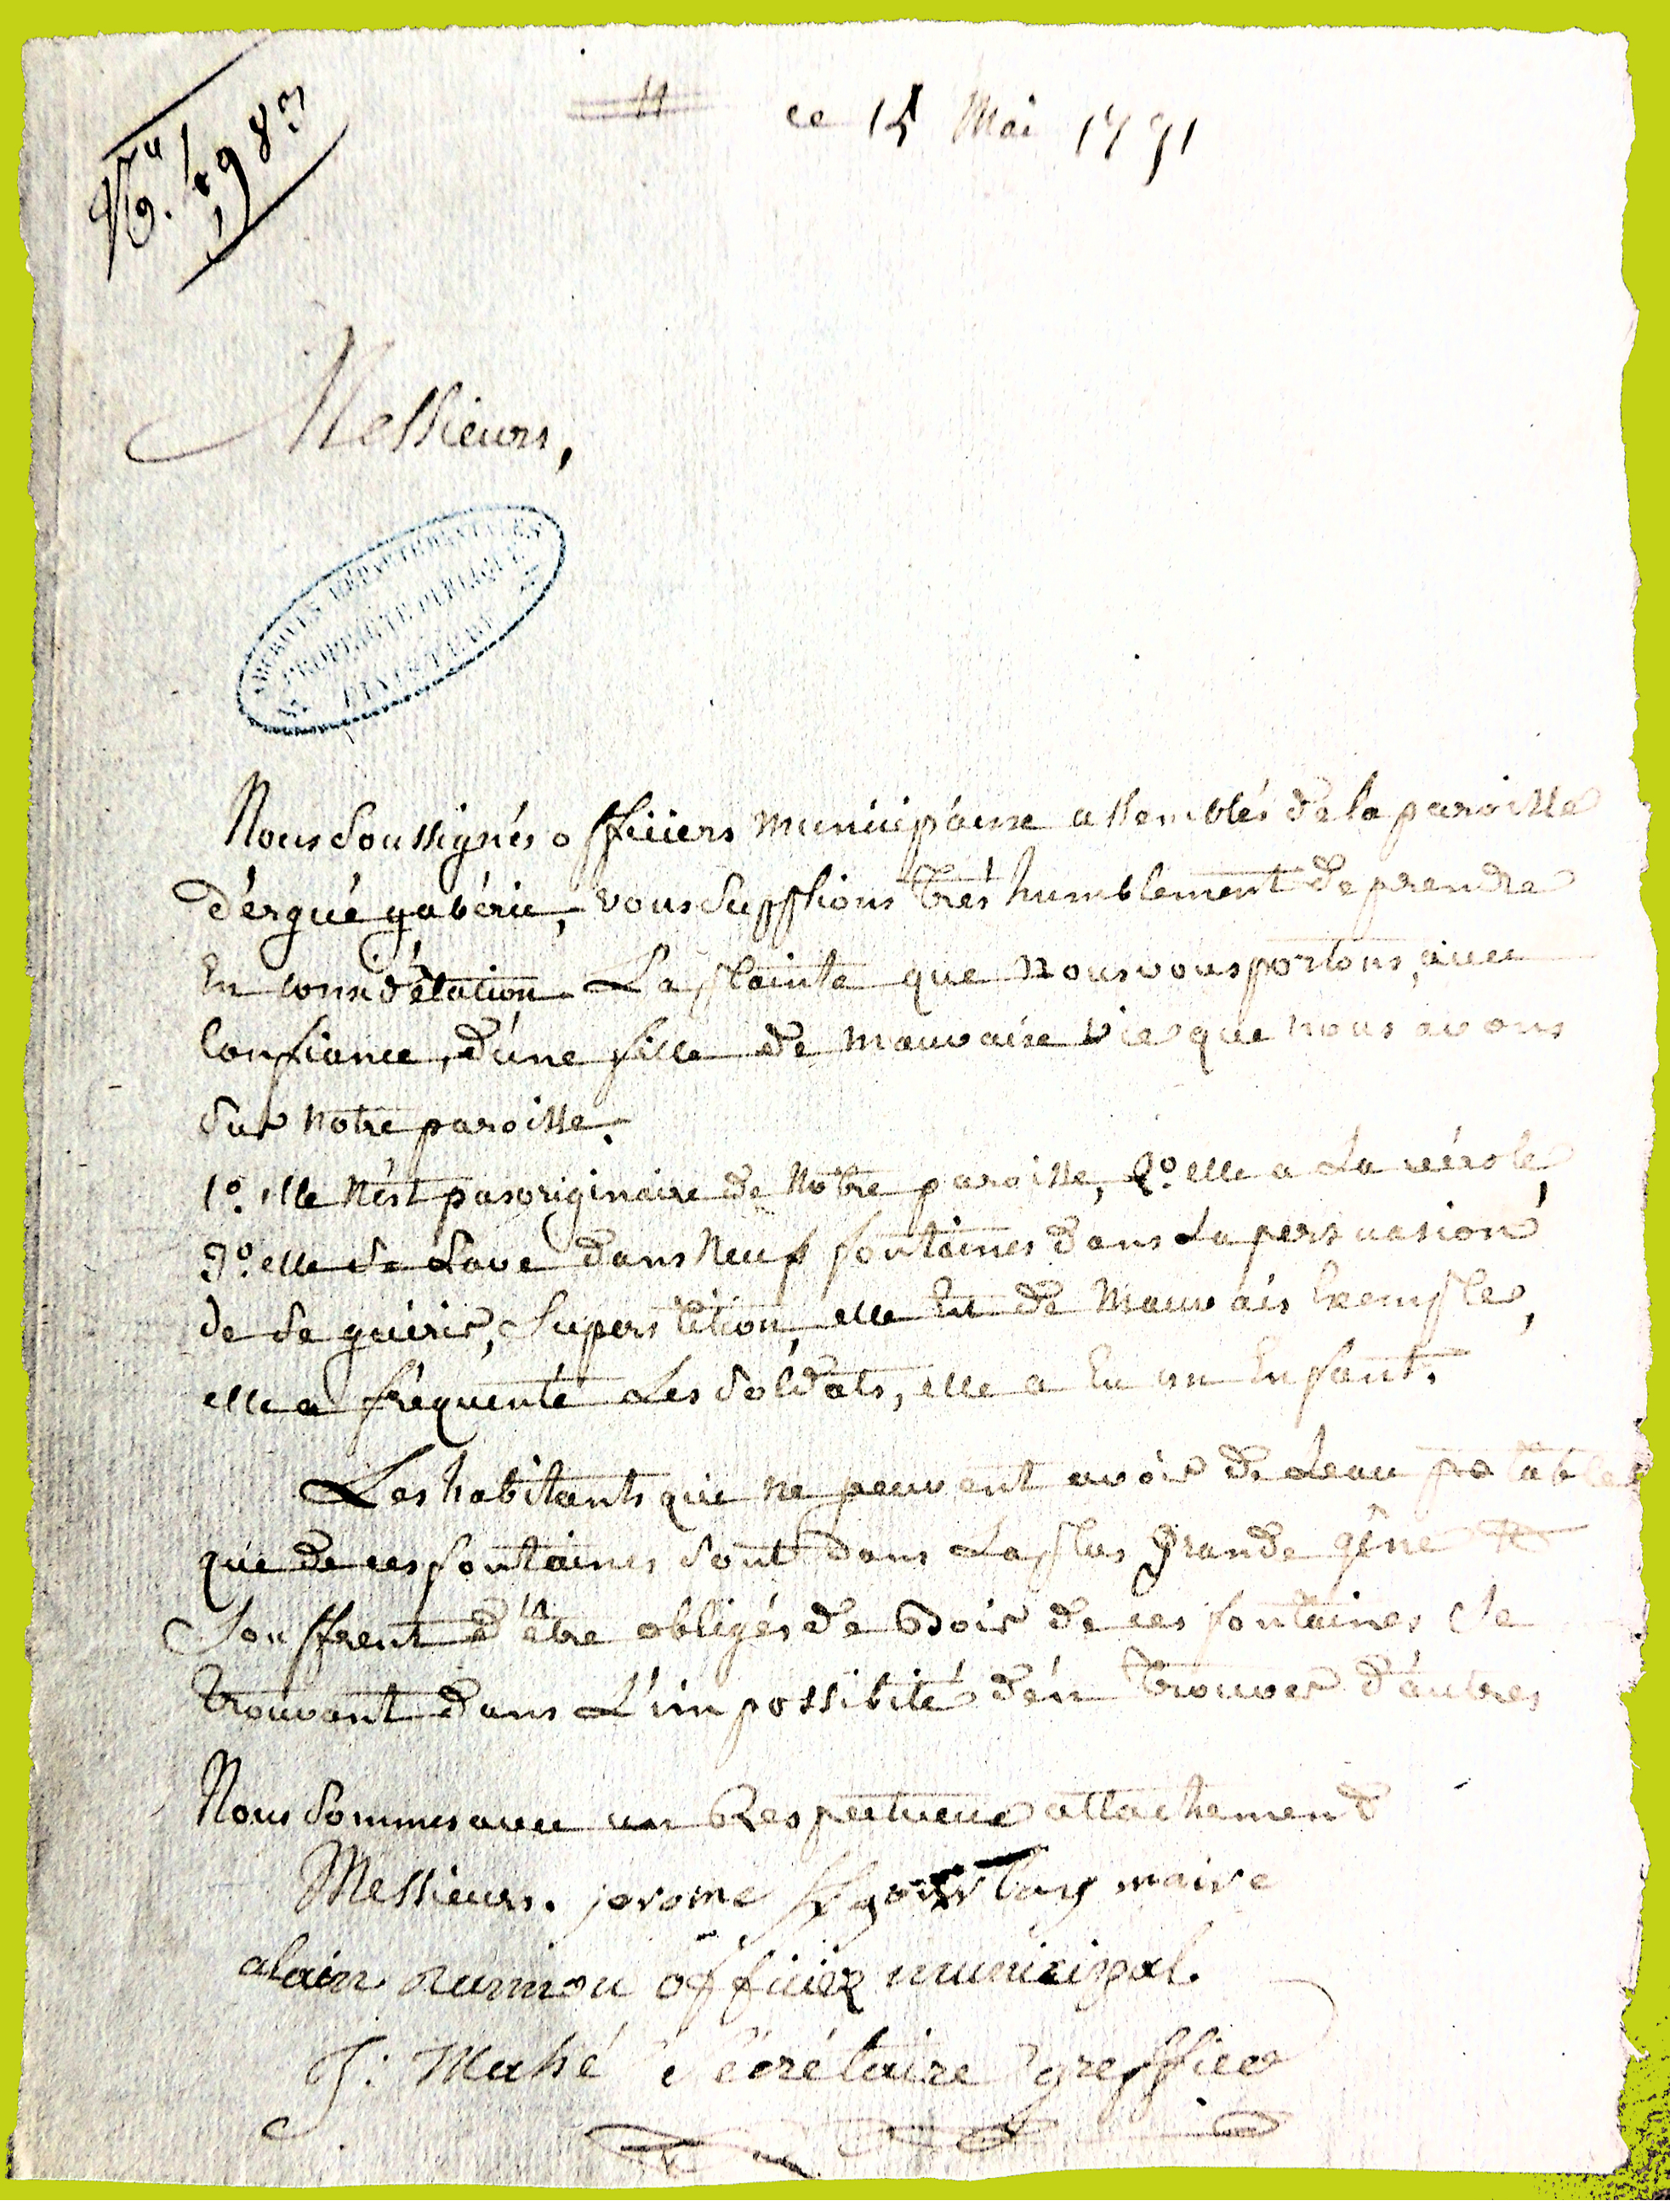 ce 15 Mai 1791
Nº. 1983
Messieurs,
ARCHIVES DÉPARTEMENTALES
PROPRIÉTÉ PUBLIQUE
FINISTÈRE
Nous Soussignés officiers municipaux assemblés de la paroisse
d'ergué gabéric, vous Supplions très humblement de prendre
En considération La plainte que nous vous portons, avec
Confiance, d'une fille de mauvaise vie que nous avons
Sur notre paroisse.
1º. elle n'ést pas originaire de notre paroisse, 2º. elle a La vérole,
3º. elle Se Lave dans Neuf fontaines dans La persuasion
de Se guérir, Superstition, elle Est de Mauvais Exemple,
elle a fréquenté Les Soldats, elle a Eu un Enfant.
Les habitants qui ne peuvent avoir de Leau potable
que de ces fontaines Sont dans La plus grande gêne &
Souffrent d'étre obligés de Boir de ces fontaines Se
trouvant dans L'impossibité d'én trouver d'autres
Nous Sommes avec un Respectueux attachement
Messieurs. jerome maire
alain officier municipal.
J: Mahé Sécrétaire greffier